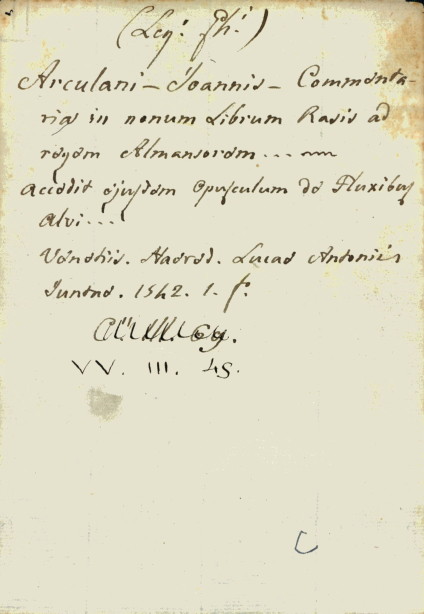 Arculani - Joannis - Commenta-
ria in nonum Librum Rasis ad
regem Almansorem...
accedit ejusdem opusculum de Fluxibus
alvi...
Venetiis. Haered. Lucae Antonii
Juntae. 1542. 1. f.
VV. III. 48.